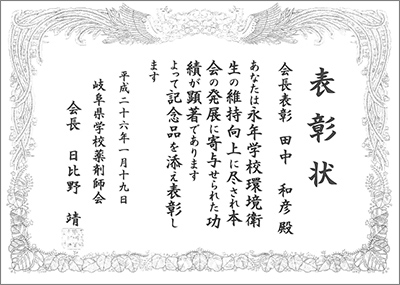 表彰状
会長表彰 田中 和彦 殿
あなたは永年学校環境衛
生の維持向上に尽され本
会の発展に寄与せられた功
績が顕著であります
よって記念品を添え表彰し
ます
平成二十六年一月十九日
岐阜県学校薬剤師会
会長 日比野 靖